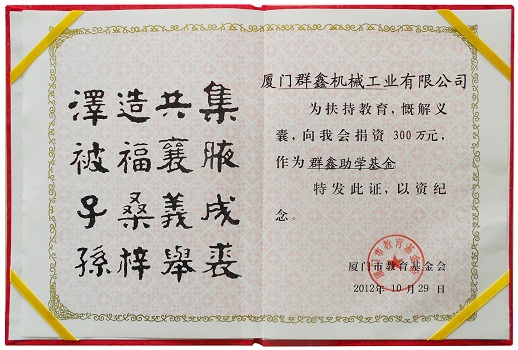 集腋成裘
共襄義舉
造福桑梓
澤被子孫
厦门群鑫机械工业有限公司
为扶持教育，慨解义
囊，向我会捐资 300 万元，
作为 群鑫助学基金
特发此证，以资纪
念。
厦门市教育基金会
2012年 10 月 29 日
厦门市教育基金会